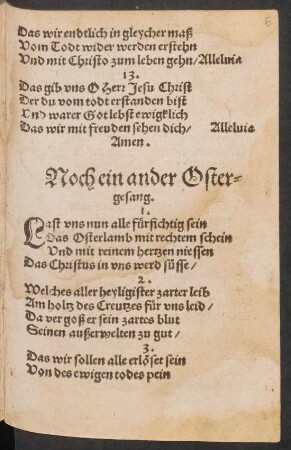 6
Das wir endtlich in gleycher maß
Vom Todt wider werden erstehn
Vnd mit Christo zum leben gehn / Alleluia
13.
Das gib vns O Herr Jesu Christ
Der du vom todt erstanden bist
Vnd warer Got lebst ewigklich
Das wir mit freuden sehen dich / Alleluia
Amen.
Noch ein ander Oster-
gesang.
1.
Last vns nun alle fürsichtig sein
Das Osterlamb mit rechtem schein
Vnd mit reinem hertzen niessen
Das Christus in vns werd süsse /
2.
Welches aller heyligister zarter leib
Am holtz des Creutzes für vns leid /
Da ver goß er sein zartes blut
Seinen außerwelten zu gut /
3.
Das wir sollen alle erlöset sein
Von des ewigen todes pein